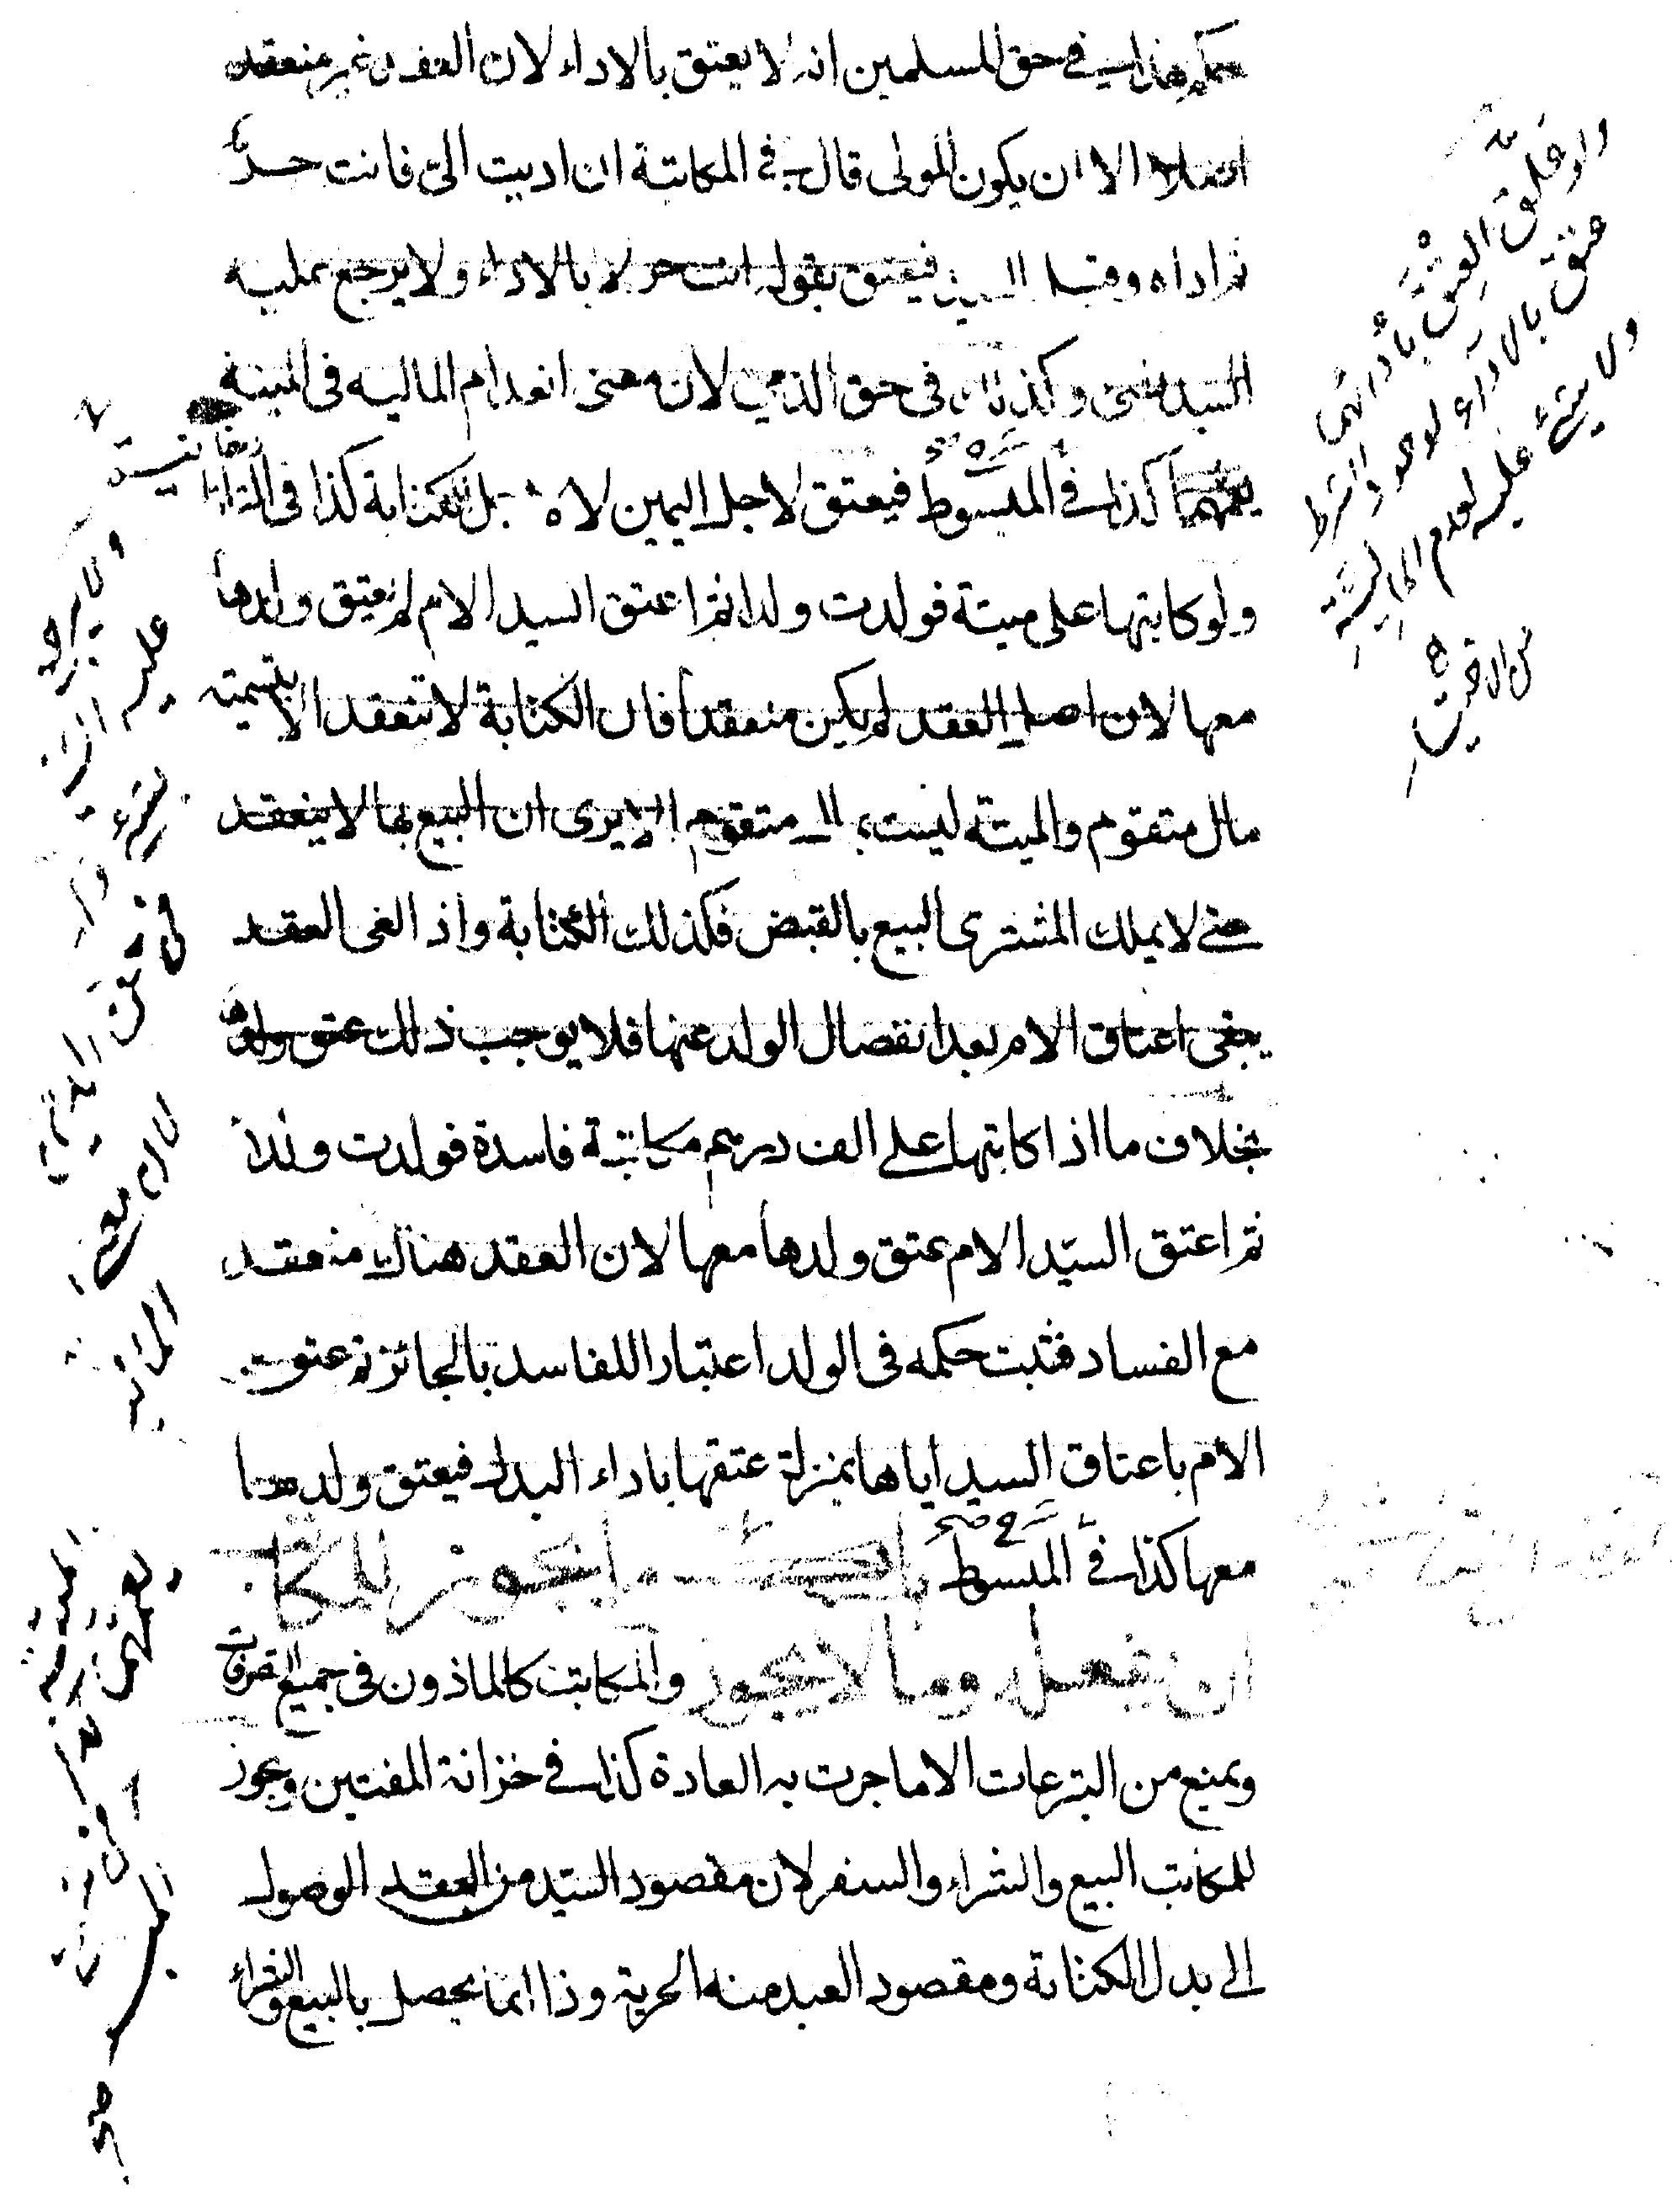 حكم هذا في حق المسلمين انه لا يعتق بالاداء لان العقد غير منعقد
اصلا الا ان يكون المولى قال في المكاتبة ان اديت الي فانت حر
ثم اداه وقبل السيد فيعتق بقوله انت حر لا بالاداء ولا يرجع عليه
السيد بشئ وكذلك في حق الذمي لان معنى انعدام المالية في الميتة
يعمهما كذا في المبسوط فيعتق لاجل اليمين لا بل الكتابة كذا في التاتارخانية
ولو كاتبها على ميتة فولدت ولدا ثم اعتق السيد الام لم يعتق ولدها
معها لان اصل العقد لم يكن منعقدا فان الكتابة لا تنعقد الا بتسمية
مال متقوم والميتة ليست بمال متقوم الا يرى ان البيع بها لا ينعقد
حتى لا يملك المشترى البيع بالقبض فكذلك الكتابة واذ الغى العقد
يبقى اعتاق الام بعد انفصال الولد عنها فلا يوجب ذلك عتق ولدها
بخلاف ما اذا كاتبها على الف درهم مكاتبة فاسدة فولدت ولدا
ثم اعتق السيد الام عتق ولدها معها لان العقد هناك منعقد
مع الفساد فثبت حكمه فى الولد اعتبارا للفاسد بالجائز ثم عتق
الام باعتاق السيد اياها بمنزلة عتقها باداء البدل فيعتق ولدها
معها كذا في المبسوط ما يجوز للمكاتب
ان يفعله وما لا يجوز والمكاتب كالماذون فى جميع التصرفات
ويمنع من التبرعات الا ما جرت به العادة كذا في خزانة المفتين ويجوز
للمكاتب البيع والشراء والسفر لان مقصود السيد من العقد الوصول
الى بدل الكتابة ومقصود العبد منه الحرية وذا انما يحصل بالبيع والشراء
ولو علق العتق بادائهما
عتق بالاداء لوجود الشرط
ولا شئ عليه لعدم المالية
ولا يرجع
عليه السيد
بشئ وكذا
فى حق الذمي
لان معنى
المالية